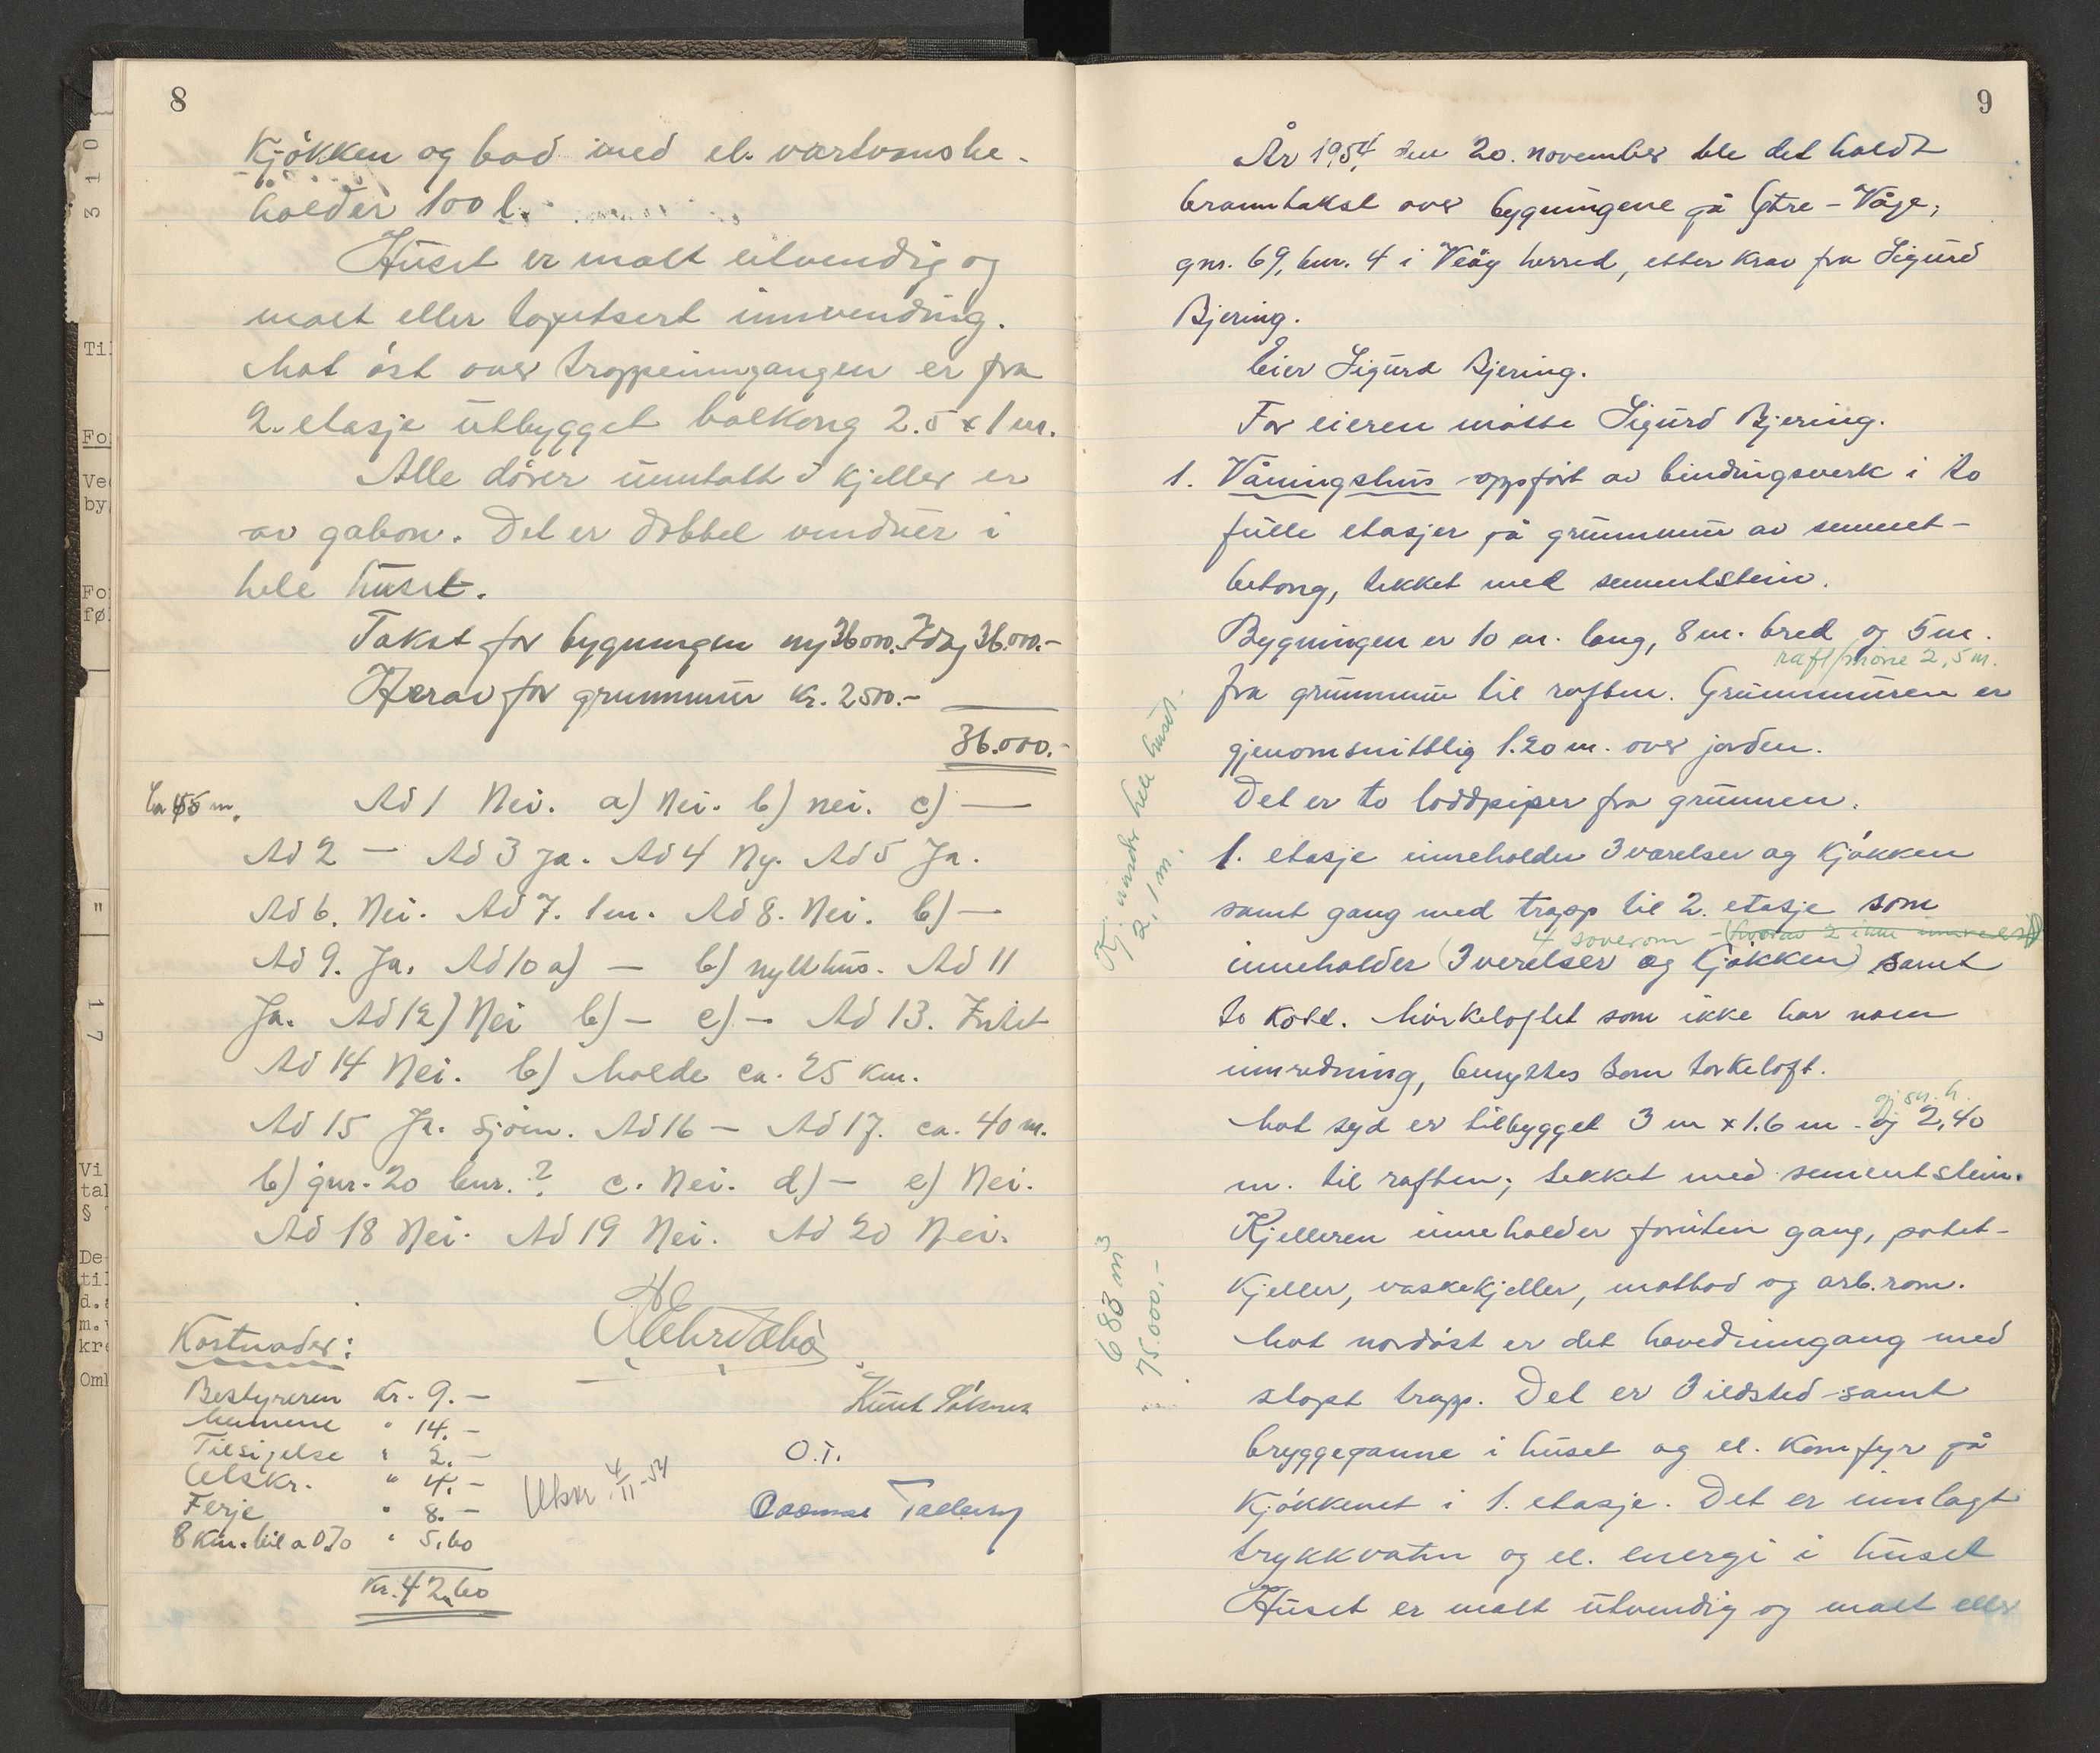 8
Kjøkken og bad med el. vartvannsbe-
holder 100 l.
Huset er malt utvendig og
malt eller tapetsert innvendig.
Mot øst over trappeinngangen er fra
2. etasje utbygget balkong 2.5 x 1 m.
Alle dører unntatt i kjeller er
av gabon. Det er dobbel vinduer i
hele huset.
Takst for bygningen ny 36000.- Idag 36.000.-
Herav for grunnmur kr. 2500.-
36.000.-
Ad 1 Nei. a) Nei. b) nei. c) —
Ad 2 — Ad 3 Ja. Ad 4 Ny. Ad 5 Ja.
Ad 6. Nei. Ad 7. 1 m. Ad 8. Nei. b) —
Ad 9. Ja. Ad 10 a) — b) nytt hus. Ad 11
Ja. Ad 12) Nei b) — c) — Ad 13. Intet
Ad 14 Nei. b) Molde ca. 25 km.
Ad 15 Ja. Sjøen. Ad 16 — Ad 17. ca. 40 m.
b) gnr. 20 bnr. ? c. Nei. d) — e) Nei.
Ad 18 Nei. Ad 19 Nei. Ad 20 Nei.
Kostnader:
Bestyreren Kr. 9.-
Mennene " 14.-
Tilsigelse " 2.-
Utskr. " 4.-
Ferje " 8.-
8 km. bil a 0.70 " 5,60
Kr. 42,60
Utskr. 4/11-54
Knut
O.T.
Rasmus
9
År 1954, den 20. november ble det holdt
branntakst over bygningene på Ytre-Våge,
gnr. 69, bnr. 4 i Veøy herred, etter krav fra Sigurd
Bjering.
Eier Sigurd Bjering.
For eieren møtte Sigurd Bjering.
1. Våningshus oppført av bindingsverk i to
fulle etasjer på grunnmur av sement-
betong, tekket med sementstein.
Bygningen er 10 m. lang, 8 m. bred og 5 m.
raft/møne 2,5 m.
fra grunnmur til raften. Grunnmuren er
gjenomsnittlig 1.20 m. over jorden.
Det er to loddpiper fra grunnen.
1. etasje inneholder 3 værelser og kjøkken
samt gang med trapp til 2. etasje som
4 soverom - (hvorav 2 ikke innredet)
inneholder (3 verelser og kjøkken) samt
to kott. Mørkeloftet som ikke har noen
innredning, benyttes som tørkeloft.
gj.sn.h.
Mot syd er tilbygget 3 m x 1.6 m. og 2,40
m. til raften; tekket med sementstein.
Kjelleren inneholder foruten gang, potet-
kjeller, vaskekjeller, matbod og arb.rom.
Mot nordøst er det hovedinngang med
støpt trapp. Det er 3 ildsted samt
bryggepanne i huset og el. komfyr på
kjøkkenet i 1. etasje. Det er innlagt
trykkvatn og el. energi i huset
Huset er malt utvendig og malt eller
Kj. under hele huset.
2,1 m.
683 m³
75.000.-